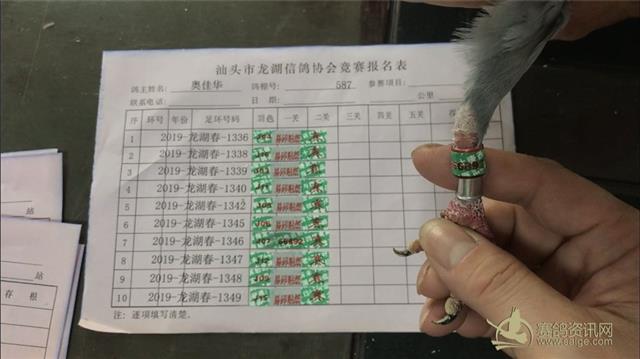 汕头市龙湖信鸽协会竞赛报名表
鸽主姓名: 奥佳华 鸽棚号: 587 参赛项目:
联系电话: 日期: 公里
序 环号 年份 足环号码 羽色 一关 二关 三关 四关 五关
1 2019-龙湖春-1336
2 2019-龙湖春-1338
3 2019-龙湖春-1339
4 2019-龙湖春-1340
5 2019-龙湖春-1342
6 2019-龙湖春-1345
7 2019-龙湖春-1346 J07 60892
8 2019-龙湖春-1347
9 2019-龙湖春-1348
10 2019-龙湖春-1349
注: 逐项填写清楚。
站
站
存根
赛鸽资讯网
www.saige.com